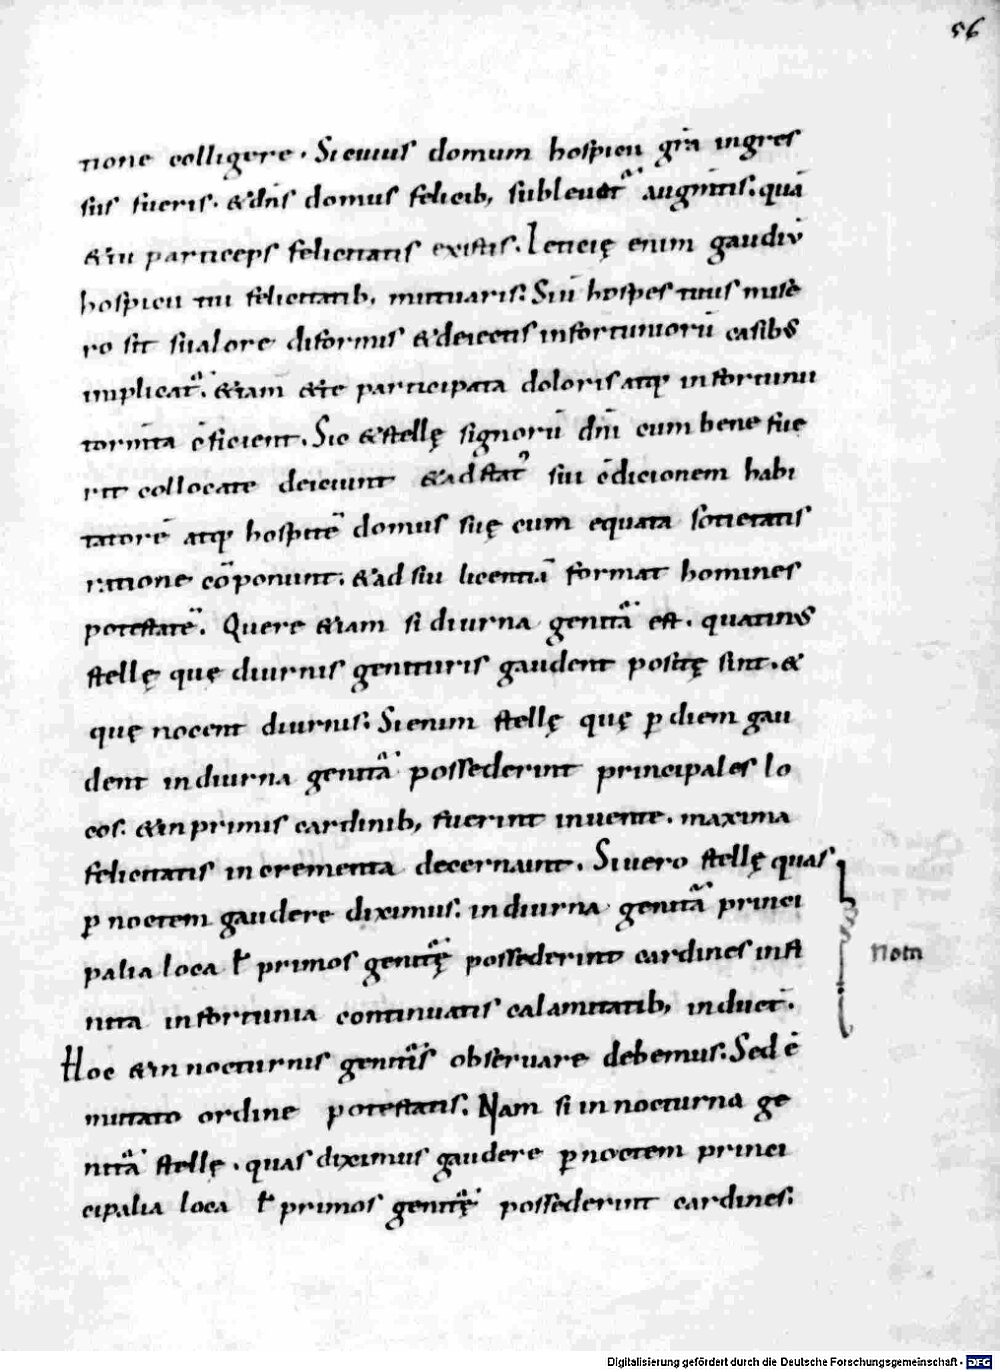 56
tione colligere. Si cuius domum hospicii gr̄a ingres
sus fueris. & dn̄s domus felicib; subleuat᷑ augm̄tis. quā
& tu particeps felicitatis existis. Letície enim gaudiū
hospicii tui felicitatib; mutuaris. Sin̄ hospes tuus mise
ro sit sualore diformis & deiectis infortuniorū casib;
implicat᷑. & iam & te participata doloris atq; infortunii
torm̄ta ēficient. Sic & stellę signorū dn̄i cum bene fue
rit collocate deiciunt & ad stat᷑ sui ədicionem habi
tatorē atq; hospitē domus suę cum equata societatis
ratione cōponunt. & ad sui licentiā format homines
potestatē. Quere & iam si diurna genit̄a est. quatinus
stellę quę diurnis genituris gaudent positę sint. &
quę nocent diurnis. Si enim stellę quę ꝑ diem gau
dent in diurna genit̄a possederint principales lo
cos. & in primis cardinib; fuerint inuente. maxima
felicitatis incrementa decernunt. Si uero stellę quas
ꝑ noctem gaudere diximus. in diurna genit̄a princi
palia loca ł primos genit̄ę possederint cardines infi
nita infortunia continuatis calamitatib; induct̄.
Hoc & in nocturnis genit̄is obseruare debemus. Sed ē
mutato ordine potestatis. Nam si in nocturna ge
nit̄a stellę. quas diximus gaudere ꝑ noctem princi
cipalia loca ł primos genit̄ę possederint cardines.
Nota
Digitalisierung gefördert durch die Deutsche Forschungsgemeinschaft - DFG